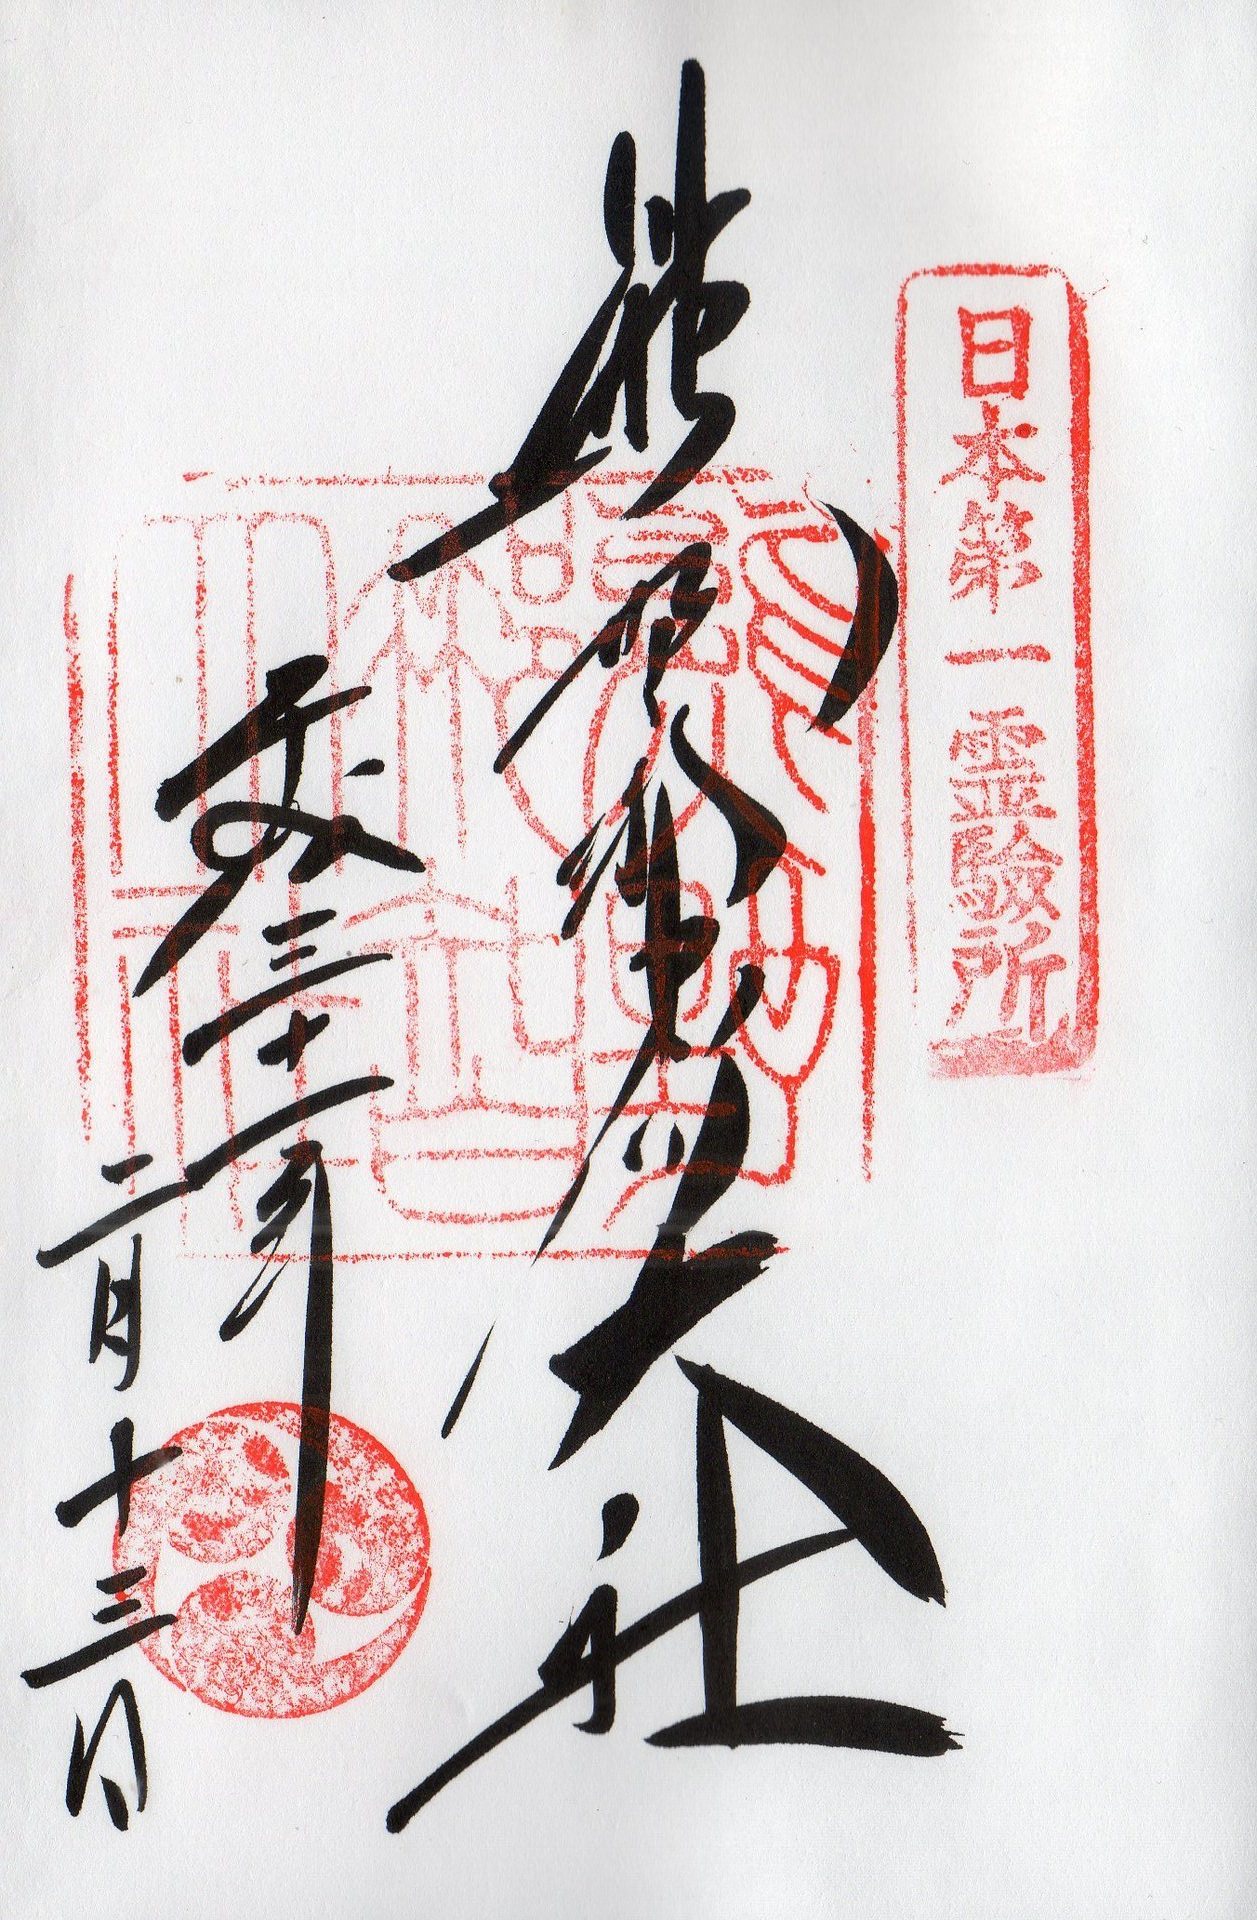 日本第一霊験所
熊野那智大社
平成三十一年
二月十三日